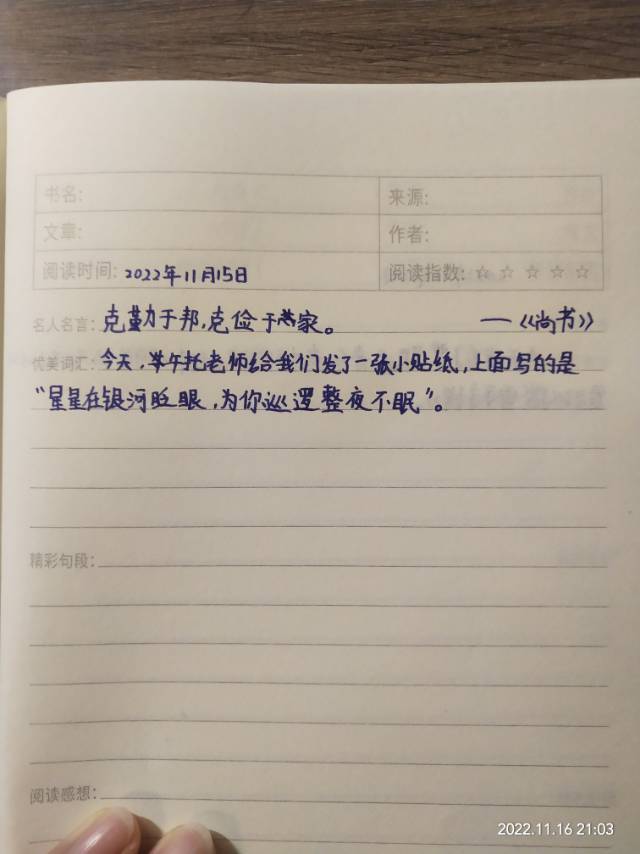 书名:
来源:
文章:
作者:
阅读时间: 2022年11月15日
阅读指数: ☆ ☆ ☆ ☆ ☆
名人名言: 克勤于邦,克俭于家。 —《尚书》
优美词汇: 今天,午托老师给我们发了一张小贴纸,上面写的是
“星星在银河眨眼,为你巡逻整夜不眠”。
精彩句段:
阅读感想:
2022.11.16 21:03